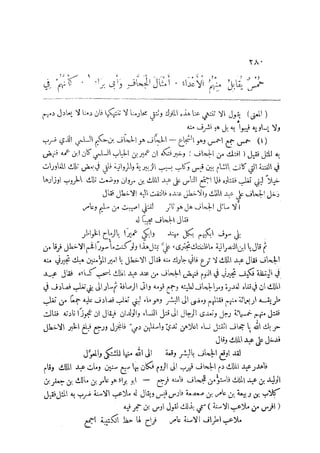 ٢٨٠
حمس يقابل منهم الأعداء أمثال الجحاف وأبي براء كأنهم في
(المعنى) يقول الا تنتهي عنا هذه الملوك وتتقي محارمنا لا تنتهكها فان دمنا لا يعادل دمهم
ولا يساويه فيبوأ به بل هو اشرف منه
(١) حمس جمع احمس وهو الشجاع — الجحاف هو الجحاف بن حكيم السلمي الذي ضرب
به المثل فقيل افتك من الجحاف : وخبر فتكه ان عمير بن الحباب السلمي كان ابن عمه فنهض
في الفتنة التي كانت بالشام بين قيس وكلب بسبب الزبيرية والمروانية فلقي في بعض تلك المغاورات
خيلاً لبني تغلب فقتلوه فلما اجتمع الناس على عبد الملك بن مروان ووضعت تلك الحروب اوزارها
دخل الجحاف على عبد الملك والاخطل عنده فالتفت اليه الاخطل فقال
الا سائل الجحاف هل هو ثائر لقتلى اصيبت من سليم وعامر
فقال الجحاف مجيبًا له
بلى سوف ابكيهم بكل مهند وابكي عميرًا بالرماح الخواطر
ثم قال يا ابن النصرانية ما ظننتك تجترىء علي بمثل هذا ولو كنت مأسورًا فحم الاخطل فرقًا من
الجحاف فقال عبد الملك لا ترع فاني جارك منه فقال الاخطل يا امير المؤمنين هبك تجيرني منه
في اليقظة فكيف تجيرني في النوم فنهض الجحاف من عند عبد الملك يسحب كساءه فقال عبد
الملك ان في قفاه لغدرة ومر الجحاف لطيته وجمع قومه واتى الرصافة ثم سار الى بني تغلب فصادف في
طريقه اربعمائة منهم فقتلهم ومضى الى البشر وهو ماء لبني تغلب فصادف عليه جمعًا من تغلب
فقتل منهم خمسمائة رجل وتعدى الرجال الى قتل النساء والولدان فيقال ان عجوزًا نادته فقالت
حربك الله يا جحاف اتقتل نساء اعلاهن ثدي واسفلهن دمي فانخزل ورجع فبلغ الخبر الاخطل
فدخل على عبد الملك وقال
لقد اوقع الجحاف بالبشر وقعة الى الله منها المشتكى والمعول
فاهدر عبد الملك دم الجحاف فهرب الى الروم فكان بها سبع سنين ومات عبد الملك وقام
الوليد بن عبد الملك فاستؤمن للجحاف فأمنه فرجع — ابو براء هو عامر بن مالك بن جعفر بن
كلاب بن ربيعة بن عامر بن صعصعة فارس قيس ويقال له ملاعب الاسنة ضرب به المثل فقيل
(افرس من ملاعب الاسنة) سمي بذلك لقول اوس بن حجر فيه
ملاعب اطراف الاسنة عامر فراح لها حظ الكتيبة اجمع